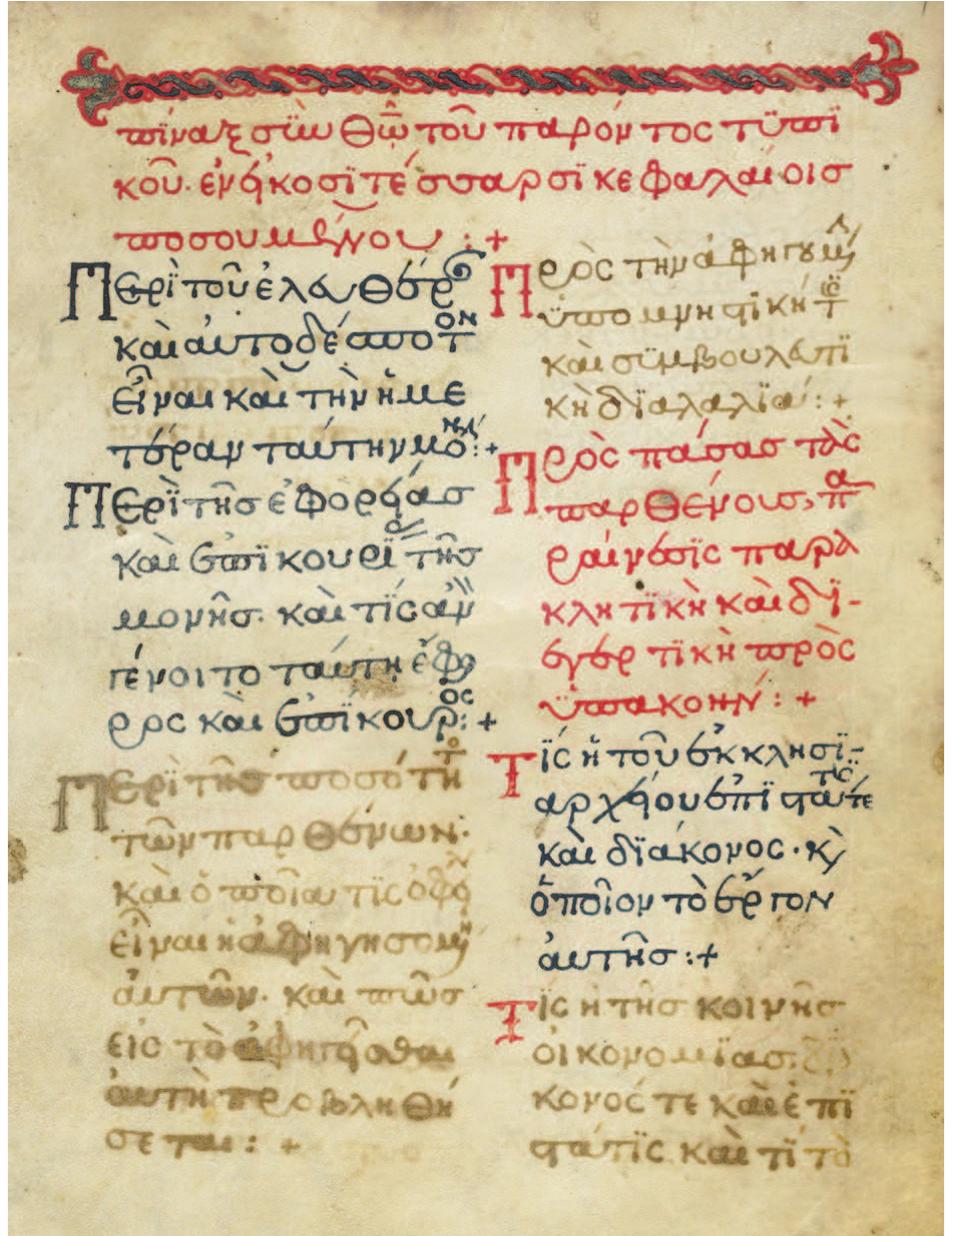 πίναξ σὺν Θῶ τοῦ παρόντος τυπι
κοῦ. ἐν εἴκοσι τέσσαρσι κεφαλαίοις
ποσουμένου :+
Περὶ τοῦ ἐλευθέρον
καὶ αὐτοδέσποτον
εἶναι καὶ τὴν ἡμε
τέραν ταύτην μονήν :+
Περὶ τῆς ἐφορείας
καὶ ἐπικουρίας τῆς
μονῆς. καὶ τίς ἂν
γένοιτο ταύτη ἔφο
ρος καὶ ἐπίκουρος :+
Περὶ τῆς ποσότητος
τῶν παρθένων.
καὶ ὁποία τίς ὀφεί
εἶναι ἡ ἀφηγησομένη
αὐτῶν. καὶ πῶς
εἰς τὸ ἀφηγεῖσθαι
αὐτὴ προβληθή
σεται : +
Πρὸς τὴν ἀφηγουμένην
ὑπομνηστικὴ τίς
καὶ συμβουλευτι
κὴ διαλαλία :+
Πρὸς πάσας τὰς
παρθένους, πα
ραίνεσις παρα
κλητικὴ καὶ δι-
εγερτικὴ πρὸς
ὑπακοήν : +
Τίς ἡ τοῦ ἐκκλησι-
αρχείου ἐπιστάτις τε
καὶ διάκονος. κ
ὁποῖον τὸ ἔργον
αὐτῆς :+
Τίς ἡ τῆς κοινῆς
οἰκονομίας διά
κονός τε καὶ ἐπι
στάτις καὶ τί τὸ